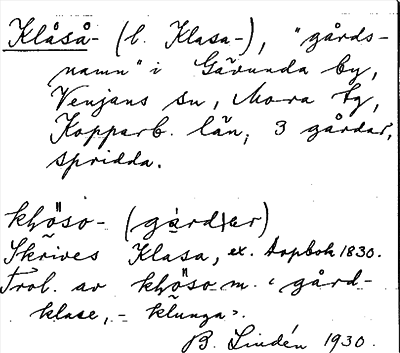 Klåså- (l. Klasa-), "gårds-
namn" i Gävunda by,
Venjans sn, Mora tg,
Kopparb. län, 3 gårdar,
spridda.
(gård|ar)
Skrives Klasa, ex. dopbok 1830.
Trol. av m. ‹gård-
klase, - klunga›.
B. Lindén 1930.